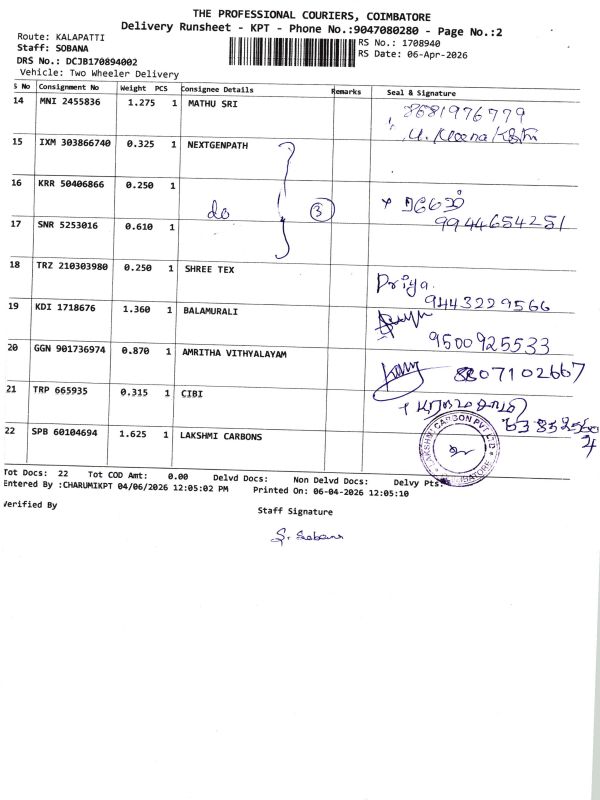 THE PROFESSIONAL COURIERS, COIMBATORE
Delivery Runsheet - KPT - Phone No.:9047080280 - Page No.:2
Route: KALAPATTI
Staff: SOBANA
RS No.: 1708940
DRS No.: DCJB170894002
RS Date: 06-Apr-2026
Vehicle: Two Wheeler Delivery
S No Consignment No Weight PCS Consignee Details Remarks Seal & Signature
14 MNI 2455836 1.275 1 MATHU SRI 8681976779
15 IXM 303866740 0.325 1 NEXTGENPATH
16 KRR 50406866 0.250 1
do 3
17 SNR 5253016 0.610 1 9944654251
18 TRZ 210303980 0.250 1 SHREE TEX Priya.
9443229566
19 KDI 1718676 1.360 1 BALAMURALI
9500925533
20 GGN 901736974 0.870 1 AMRITHA VITHYALAYAM 8807102667
21 TRP 665935 0.315 1 CIBI
22 SPB 60104694 1.625 1 LAKSHMI CARBONS
LAKSHMI CARBON PVT LTD
COIMBATORE
Tot Docs: 22 Tot COD Amt: 0.00 Delvd Docs: Non Delvd Docs: Delvy Pts:
Entered By :CHARUMIKPT 04/06/2026 12:05:02 PM Printed On: 06-04-2026 12:05:10
Verified By
Staff Signature
S. Sobana